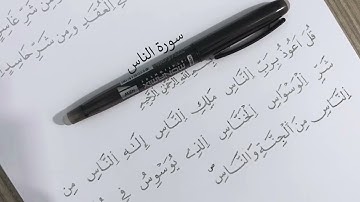 ـن شَرِّ غَاسِـ
ـى الْعُقَدِ وَمِنْ شَرِّ حَاسِدٍ
سورة الناس
بِسْمِ اللهِ الرَّحْمٰنِ الرَّحِيْمِ
قُلْ اَعُوْذُ بِرَبِّ النَّاسِ مَلِكِ النَّاسِ اِلٰهِ النَّاسِ مِنْ
شَرِّ الْوَسْوَاسِ الْخَنَّاسِ الَّذِيْ يُوَسْوِسُ فِيْ
النَّاسِ مِنَ الْجِنَّةِ وَالنَّاسِ